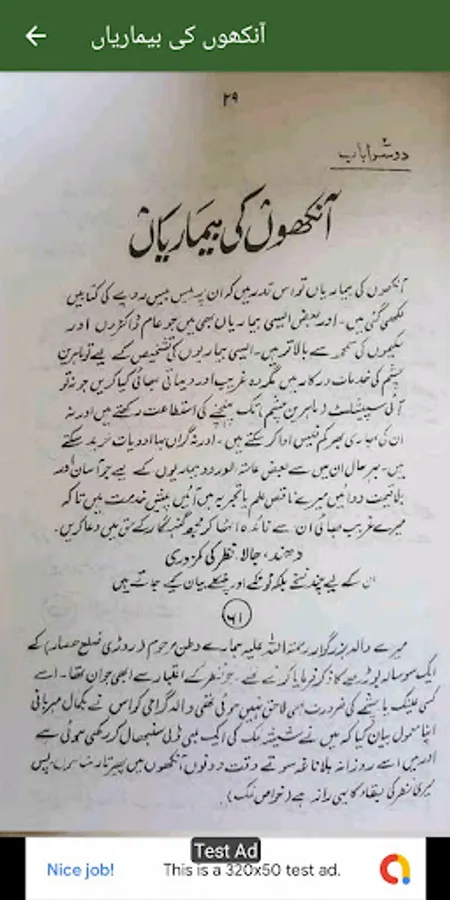 آنکھوں کی بیماریاں
۲۹
دوسرا باب
آنکھوں کی بیماریاں
آنکھوں کی بیماریاں تو اس قدر ہیں کہ ان پر بیس بیس روپے کی کتابیں
لکھی گئی ہیں۔ اور بعض ایسی بیماریاں بھی ہیں جو عام ڈاکٹروں اور
حکیموں کی سمجھ سے بالاتر ہیں۔ ایسی بیماریوں کی تشخیص کے لیے تو ماہرین
چشم کی خدمات درکار ہیں مگر وہ غریب اور دیہاتی بھائی کیا کریں جو نہ تو
آئی سپیشلسٹ (ماہرین چشم) تک پہنچنے کی استطاعت رکھتے ہیں اور نہ
ان کی بھاری بھرکم فیس ادا کر سکتے ہیں۔ اور نہ گراں بہا ادویات خرید سکتے
ہیں۔ بہرحال ان میں سے بعض عام الورود بیماریوں کے لیے جو آسان اور
بلا قیمت دوائیں میرے ناقص علم یا تجربہ میں آئیں پیش خدمت ہیں تاکہ
میرے غریب بھائی ان سے فائدہ اٹھا کر مجھ گنہگار کے حق میں دعا کریں۔
دھند، جالا، نظر کی کمزوری
ان کے لیے چند نسخے بلکہ ٹوٹکے اور چٹکلے بیان کیے جاتے ہیں
۶۱
میرے والد بزرگوار رحمۃ اللہ علیہ ہمارے وطن مرحوم (روڑی ضلع حصار) کے
ایک سو سالہ بوڑھے کا ذکر فرمایا کرتے تھے۔ جو نظر کے اعتبار سے ابھی جوان تھا۔ اسے
کسی عینک یا چشمے کی ضرورت ہی لاحق نہیں ہوئی تھی والد گرامی کو اس نے بکمال مہربانی
اپنا معمول بیان کیا کہ میں نے شیشہ نمک کی ایک بڑی ڈلی سنبھال کر رکھی ہوئی ہے
اور میں اسے روزانہ بلا ناغہ سوتے وقت دونوں آنکھوں میں پھیرتا رہتا ہوں بس
میری نظر کی بقاء کا یہی راز ہے (خواص نمک)
Test Ad
Nice job!
This is a 320x50 test ad.